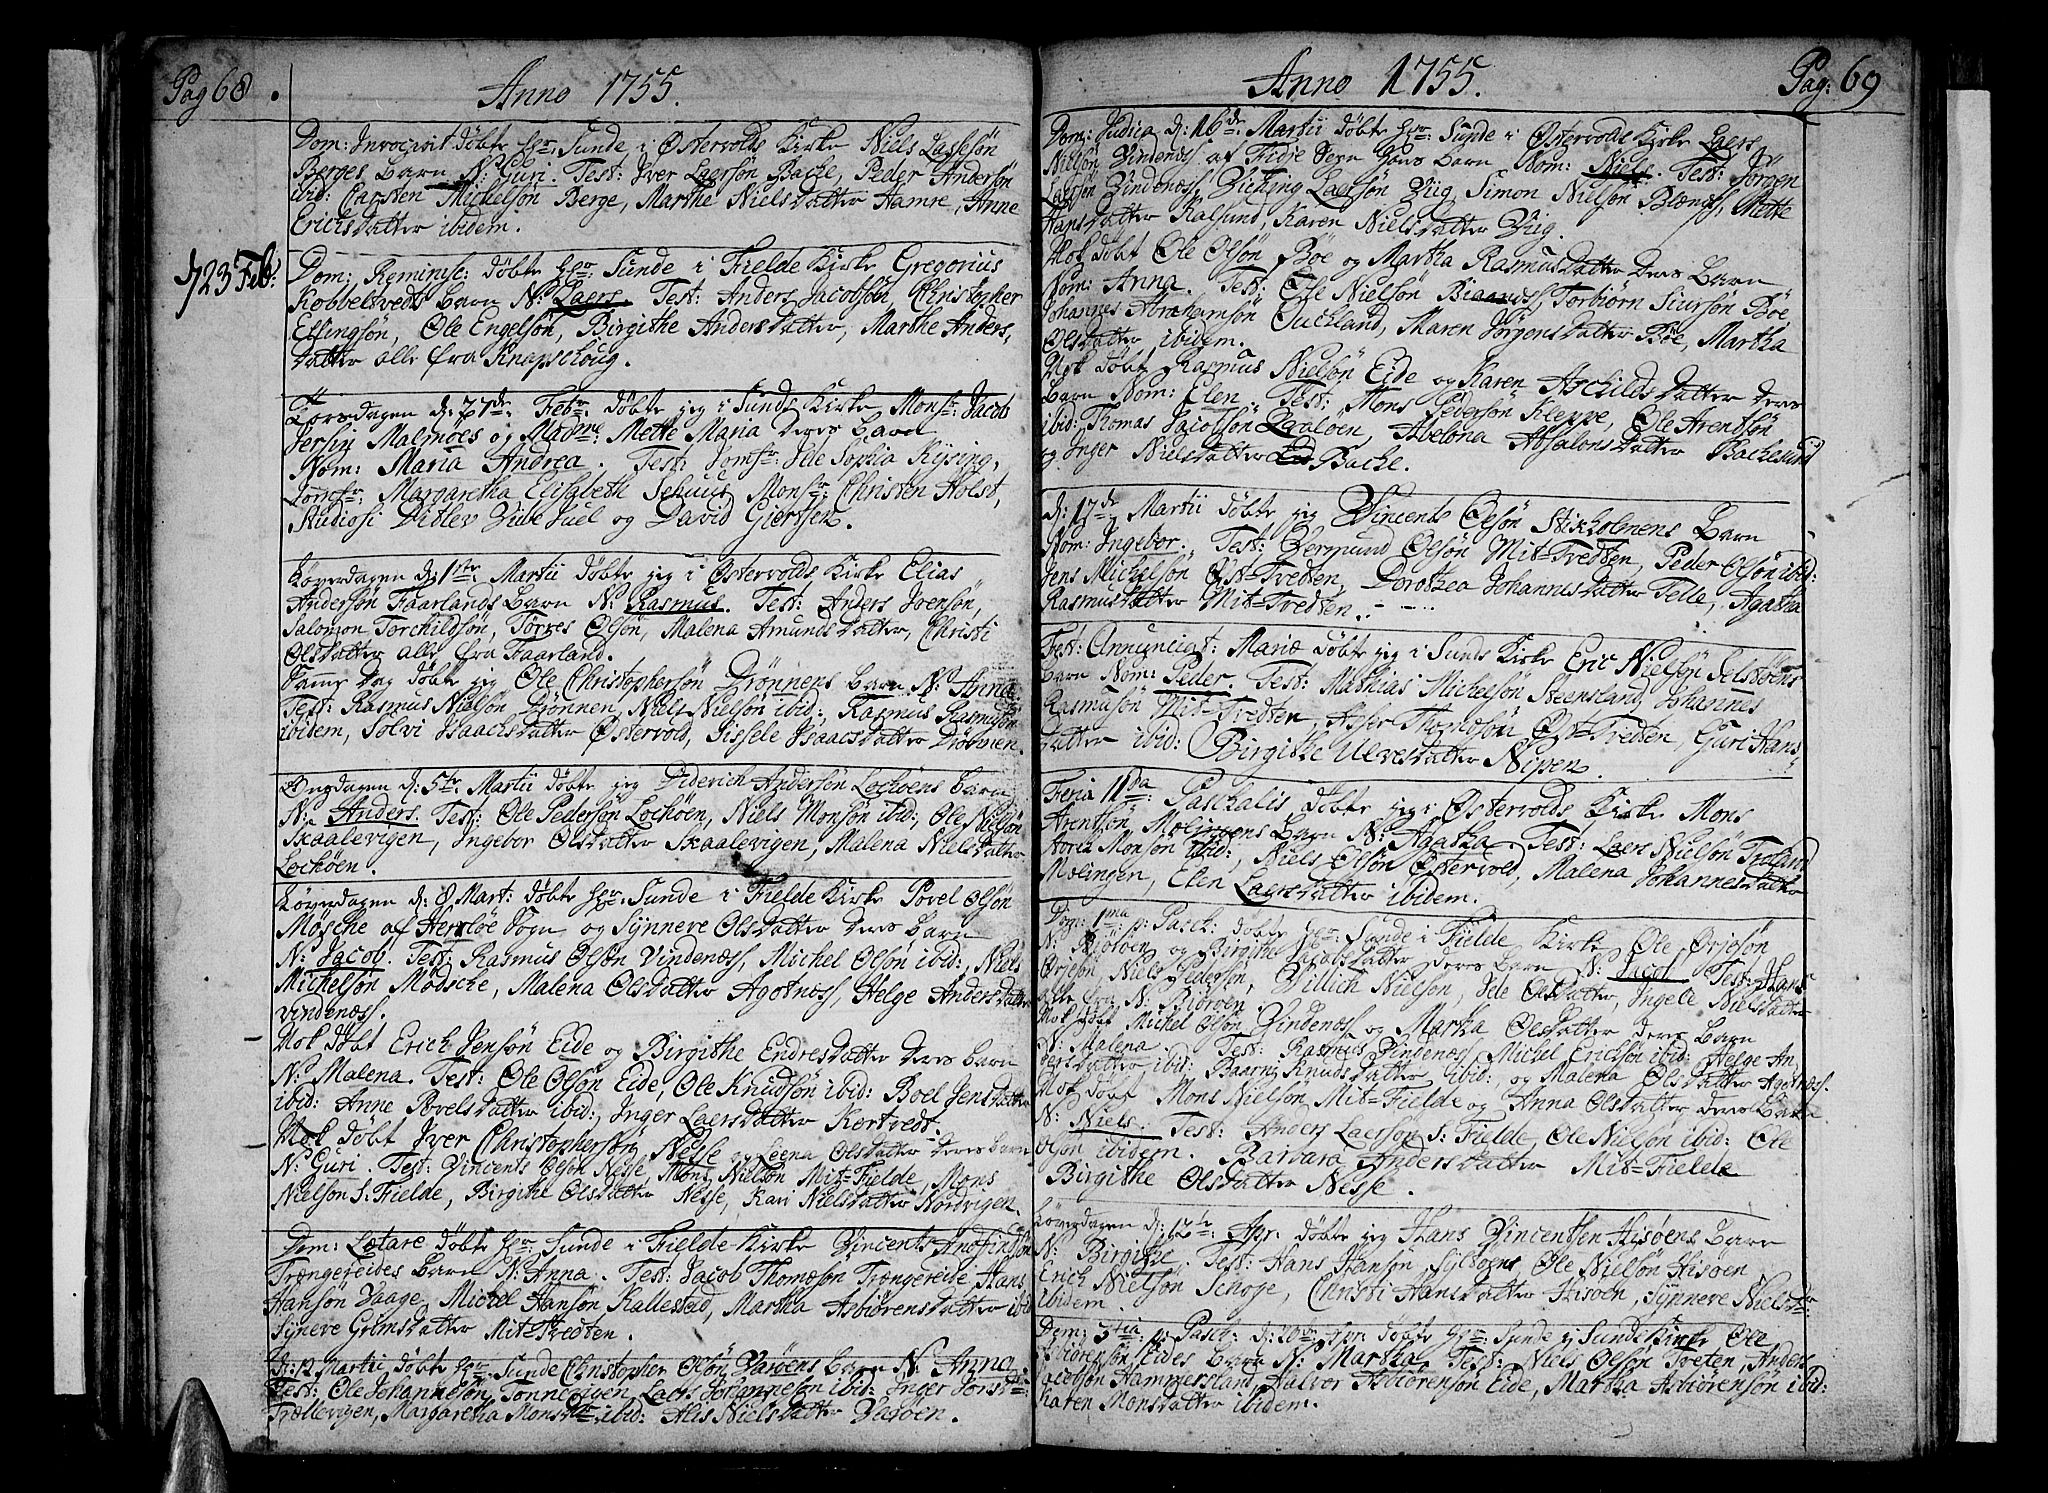 Pag 68
Anno 1755.
Dom: Invocavit döbte Hr: Sunde i Østervolds Kirke Niels Lassesön
Berges barn N: Guri. Test: Iver Laersön Bache, Peder Andersön
ibid: Carsten Michelsön Berge, Marthe Nielsdatter Hamre, Anne
Erichsdatter ibidem.
d 23 Feb:
Dom: Reminisc: döbte Hr: Sunde i Fielde Kirke Gregorius
Kobbeltvedts barn N: Laers. Test: Anders Jacobsön, Christopher
Ellingsön, Ole Engelsön, Birgithe Andersdatter, Marthe Anders,
datter alle fra Knapschoug.
Torsdagen d: 27de Febr: döbte jeg i Sunds Kirke Monsr: Jacob
Jersin Malmöes og Madme: Mette Maria deres barn
Nom: Maria Andrea. Test: Jomfr: Ide Sophia Rÿsing,
Jomfr: Margaretha Elisabeth Schuus Monsr: Christen Holst,
Studiosi Ditlev Vibe Juel og David Giertsen.
Löverdagen d: 1ste Martii döbte jeg i Østervolds Kirke Elias
Andersön Faarlands barn N: Rasmus. Test: Anders Jvensön,
Salomon Torchildsön, Torres Olsön, Malena Amundsdatter, Christi
Olsdatter alle fra Faarland.
Samme Dag döbte jeg Ole Christophersön Drönnens barn N: Anna
Test: Rasmus Nielsön Drönnen, Niels Nielsön ibid:, Rasmus Rasmusön
ibidem, Solvi Isaachsdatter Østervold, Sissele Isaacsdatter Drönnen.
Onsdagen d: 5te Martii döbte jeg Diderich Andersön Lochöens barn
N: Anders. Test: Ole Pedersön Lochöen, Niels Monsön ibid:, Ole Nielsön
Skaalevigen, Ingebor Olsdatter Skaalevigen, Malena Nielsdatter
Lochöen.
Löverdagen d: 8 Mart: döbte Hr: Sunde i Fielde Kirke Povel Olsön
Mösche af Herlöe Sogn og Synnere Olsdatter deres barn
N: Jacob. Test: Rasmus Olsön Vindenæs, Michel Olsön ibid:, Niels
Michelsön Mödsche, Malena Olsdatter Agotnæs, Helge Andersdatter
vindenæs.
Nok döbt Erich Jensön Eide og Birgithe Endresdatter deres barn
N: Malena. Test: Ole Olsön Eide, Ole Knudsön ibid: Boel Jensdatter
ibid: Anne Povelsdatter ibid:, Inger Laersdatter Kortvedt.
Nok döbt Iver Christophersön Nesse og Leena Olsdatter deres barn
N: Guri. Test: Vincents Olsön Nesse, Mons Nielsön Mit=Fielde, Mons
Nielsön S: Fielde, Birgithe Olsdatter Nesse, Kari Nielsdatter Nordvigen.
Dom: Lætare döbte Hr: Sunde i Fielde-Kirke Vincents Anofindsön
Trængereides barn N: Anna. Test: Jacob Thomæsön Trængereide, Hans
Hansön Vaage, Michel Hansön Kallestad, Martha Asbiörensdatter ibid
Synere Grimsdatter Mit=Tredten.
d: 12 Martii döbte Hr: Sunde Christopher Olsön Varöens barn N: Anna.
Test: Ole Johannesön Tonneviigen, Laers Johannesön ibid: Inger Jorsd:
Trællevigen, Margaretha Monsdtr: ibid: Alis Nielsdatter Varöen.
Pag: 69
Anno 1755.
Dom: Judica d: 16de Martii döbte Hr: Sunde i Østervolds Kirke Laers
Nielsön Vindenæs af Fidje Sogn hans barn Nom: Niels. Test: Jörgen
Laersön Vindenæs, Viching Laersön Viig, Simon Nielsön Blænes, Mette
Hansdatter Kalsund, Karen Nielsdatter Viig.
Nok döbt Ole Olsön Böe og Martha Rasmusdatter deres barn
Nom: Anna. Test: Ole Nielsön Biaanæs, Torbiörn Siursön Böe
Johannes Abrahamsön Ouchland, Maren Jörgensdatter Böe, Martha
Olsdatter ibidem.
Nok döbt Rasmus Nielsön Eide og Karen Aschildsdatter deres
barn Nom: Elen. Test: Mons Pedersön Kleppe, Ole Arentsön
ibid: Thomas Jacobsön Lavlöen, Abelona Absalonsdatter Bachesund
og Inger Nielsdatter Bache.
d: 17de Martii döbte jeg Vincents Olsön Stikholmens barn
Nom: Ingebor. Test: Vermund Olsön Mit=Tredten, Peder Olsön ibid:
Jens Michelsön Øst=Tredten, Dorothea Johannesdatter Telle, Agatha
Rasmusdatter Mit=Tredten.
Fest: Annunciat: Mariæ döbte jeg i Sunds Kirke Eric Nielsön Selstöens
barn Nom: Peder. Test: Mathias Michelsön Steensland, Johannes
Rasmusön Mit=Tredten, Asser Thomæsön Øst=Tredten, Guri Hans,
datter ibid: Birgithe Ulvesdatter Nipen.
Feria IIda: Paschalis döbte jeg i Østervolds Kirke Mons
Arentsön Mölingens barn N: Agatha. Test: Laers Nielsön Troland
Monsön ibid:, Niels Olsön Østervold, Malena Johannesdatter
Mölingen, Elen Laersdatter ibidem.
Dom: 1ma p: Pasch: döbte Hr: Sunde i Fielde Kirke Ole Ørjesön
N: Biöröen og Birgithe Jacobsdatter deres barn N: Jacob. Test: Hans
Örjesön, Niels Pedersön, Villich Nielsön, Jele Olsdatter, Ingele Nielsdatter
alle fra N: Biöröen.
Nok döbt Michel Olsön Vindenæs og Martha Olsdatter deres barn
N: Malena. Test: Rasmus Vindenæs, Michel Ericksön ibid: Helge An,
dersdatter ibid: Baarni Knudsdatter ibid:, og Malena Olsdatter Agotnæs.
Nok döbt Mons Nielsön Mit=Fielde og Anna Olsdatter deres barn
N: Niels. Test: Anders Laersön S: Fielde, Ole Nielsön ibid: Ole
Olsön ibidem. Barbara Andersdatter Mit=Fielde
Birgithe Olsdatter Nesse.
Löverdagen d: 12te Apr: döbte jeg Hans Vincentsen Hisöens barn
N: Birgithe. Test: Hans Hansön Syltöen, Ole Nielsön Hisöen
Erich Nielsön Schoge, Christi Hansdatter Hisöen, Synnere Nielsdtr:
ibidem.
Dom: 3tia p: Pasch: d: 20de Apr: döbte Hr: Sunde i Sunds Kirke Ole
Asbiörensön Eides barn N: Martha. Test: Niels Olsön Treten, Anders
Jacobsön Hammersland, Halver Asbiörensön Eide, Martha Asbiörensön ibid:
Karen Monsdatter ibidem.